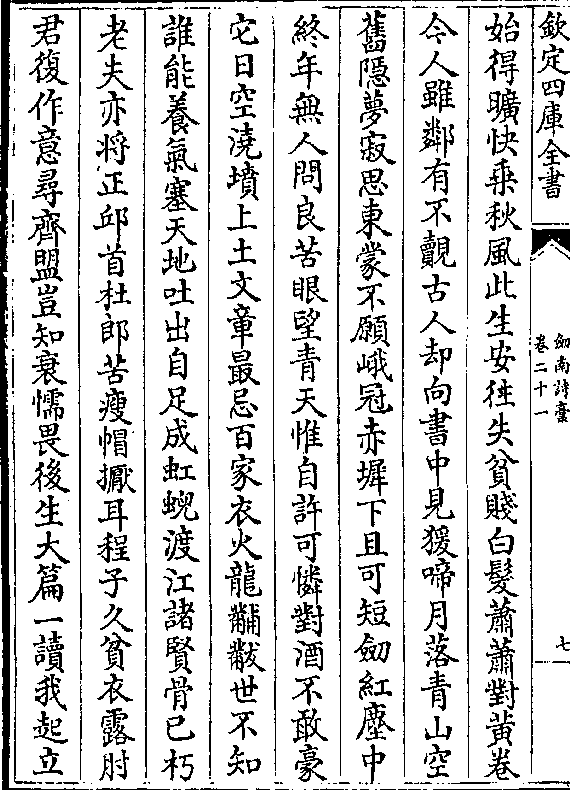 欽定四庫全書
劒南詩藁
卷二十一
七
始得曠快乗秋風此生安徃失貧賤白髮蕭蕭對黃卷
今人雖鄰有不覿古人却向書中見猨啼月落青山空
舊隱夢寂思東蒙不願峨冠赤墀下且可短劒紅塵中
終年無人問良苦眼望青天惟自許可憐對酒不敢豪
它日空澆墳上土文章最忌百家衣火龍黼黻世不知
誰能養氣塞天地吐出自足成虹蜺渡江諸賢骨已朽
老夫亦将正邱首杜郎苦瘦帽擫耳程子久貧衣露肘
君復作意尋齊盟豈知衰懦畏後生大篇一讀我起立